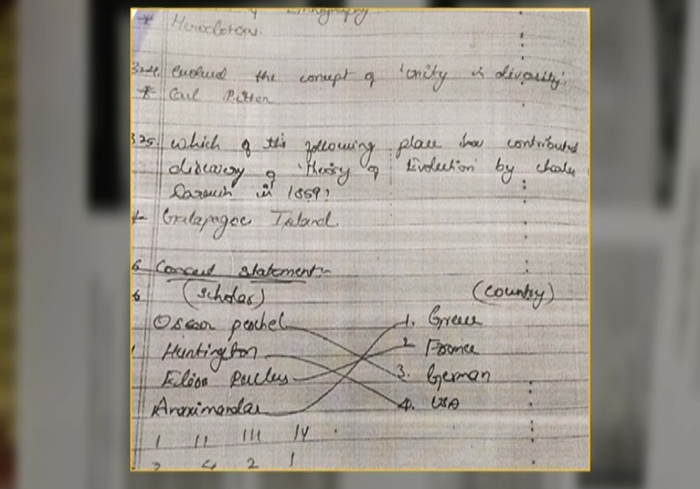 Lithography
* Herodotus.
324. evolved the concept of 'unity in diversity'.
* Carl Ritter
325. which of the following place has contributed
discovery of 'theory of Evolution' by
Darwin in 1859?
* Galapagoe Island.
6 Correct statement-
6 (scholar) (country)
Oscar peschel 1. Greece
Huntington 2. France
Reclus 3. German
Anaximander 4. USA
I II III IV
3 4 2 1